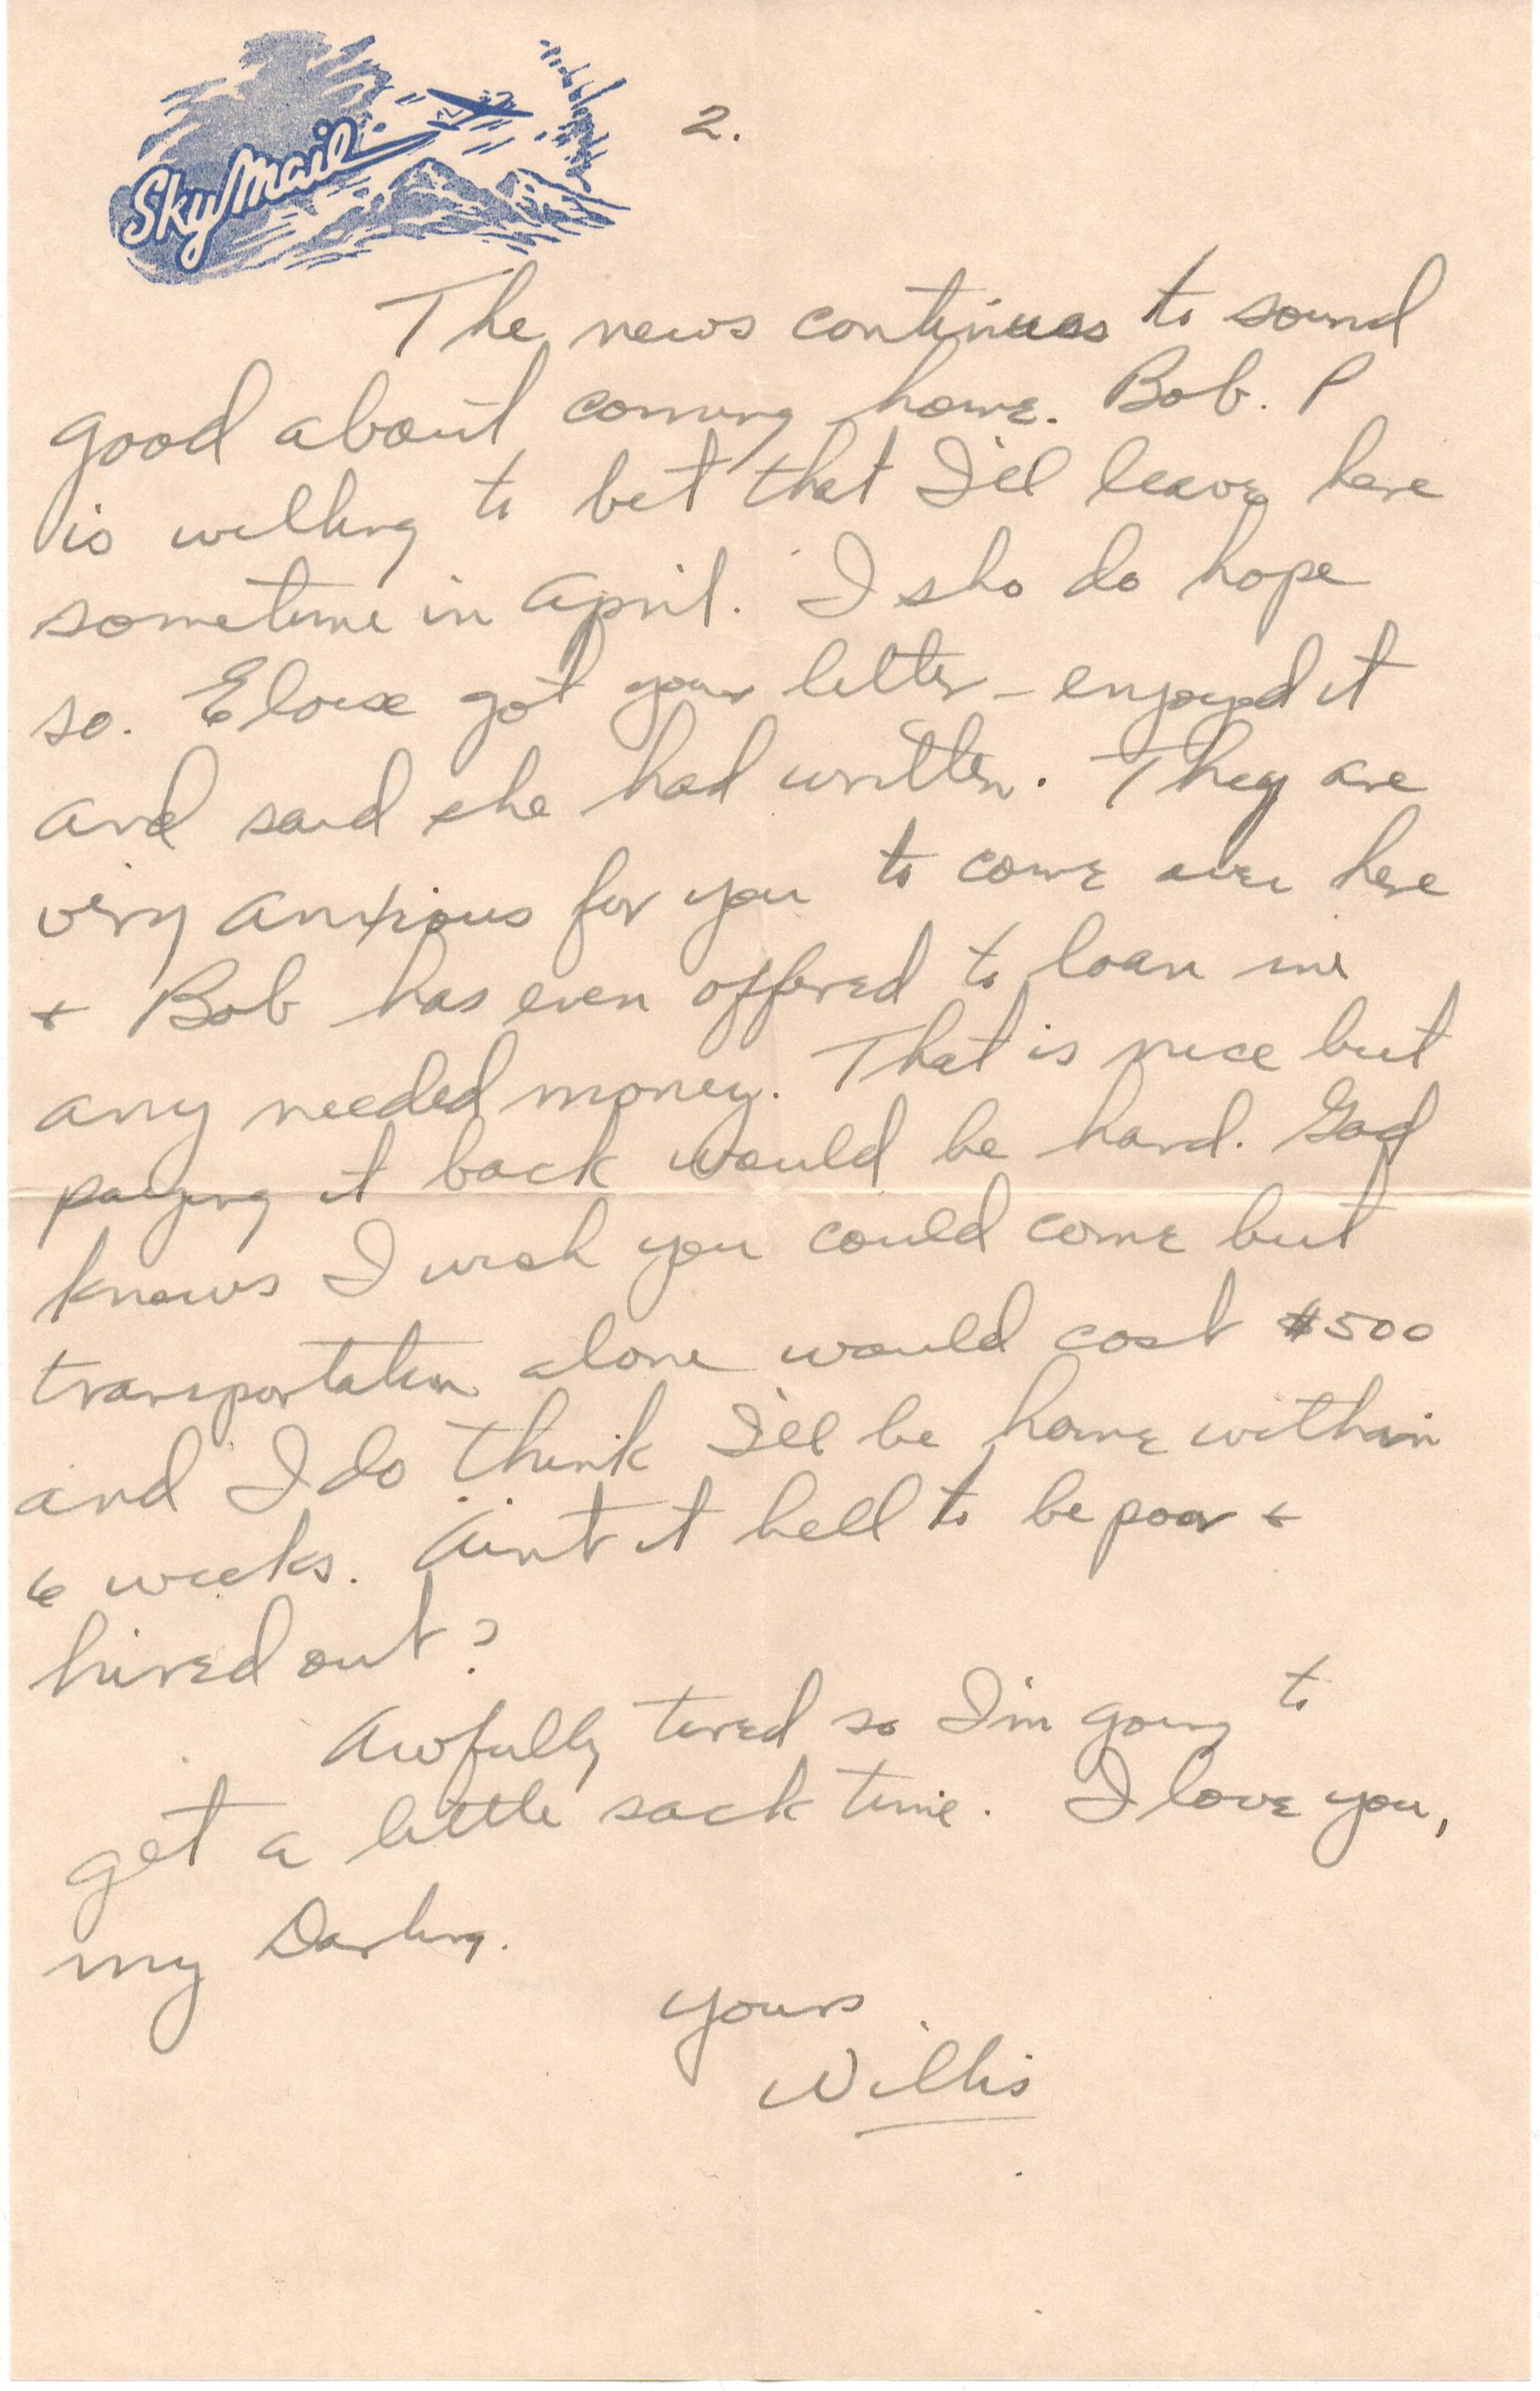 Sky Mail
2.
The news continues to sound
good about coming home. Bob. P
is willing to bet that I'll leave here
sometime in April. I sho do hope
so. Eloise got your letter - enjoyed it
and said she had written. They are
very anxious for you to come over here
+ Bob has even offered to loan me
any needed money. That is nice but
paying it back would be hard. God
knows I wish you could come but
transportation alone would cost $500
and I do think I'll be home within
6 weeks. Ain't it hell to be poor +
hired out?
Awfully tired so I'm going to
get a little sack time. I love you,
my Darling.
Yours
Willis